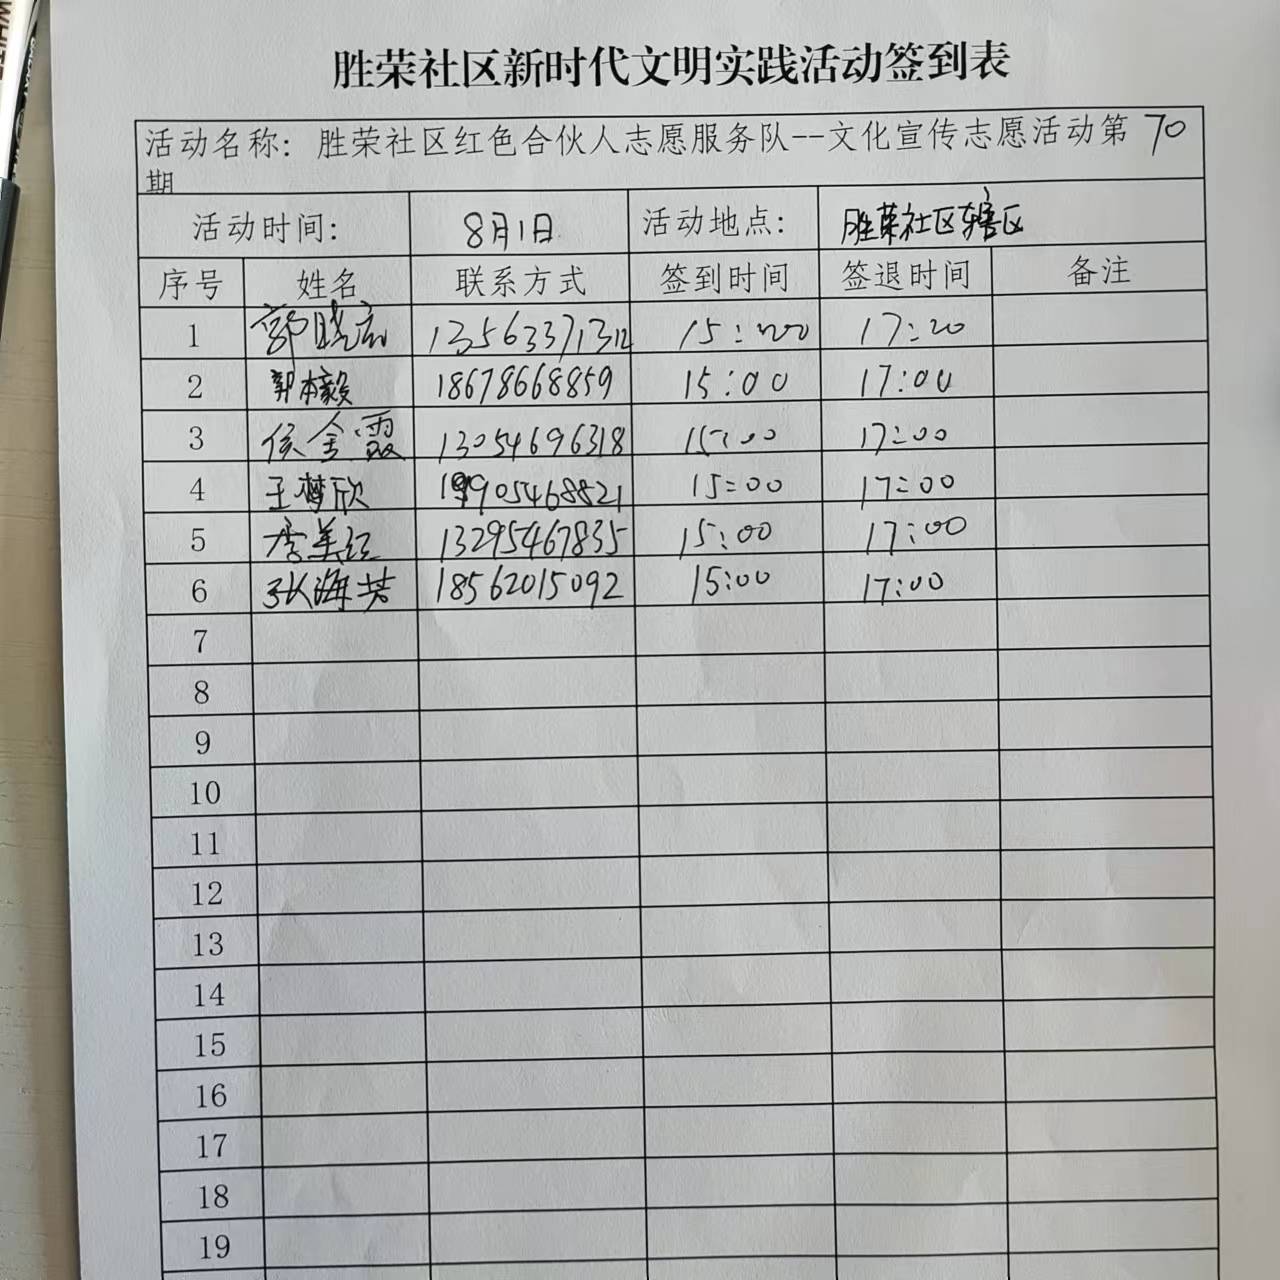 胜荣社区新时代文明实践活动签到表
活动名称: 胜荣社区红色合伙人志愿服务队--文化宣传志愿活动第 70
期
活动时间: 8月1日 活动地点: 胜荣社区辖区
序号 姓名 联系方式 签到时间 签退时间 备注
1 郭晓 15:00 17:20
2 郭本毅 18678668859 15:00 17:00
3 侯金霞 13054696318 15:00 17:00
4 王梦欣 19905468821 15:00 17:00
5 李美红 13295467835 15:00 17:00
6 张海芳 18562015092 15:00 17:00
7
8
9
10
11
12
13
14
15
16
17
18
19